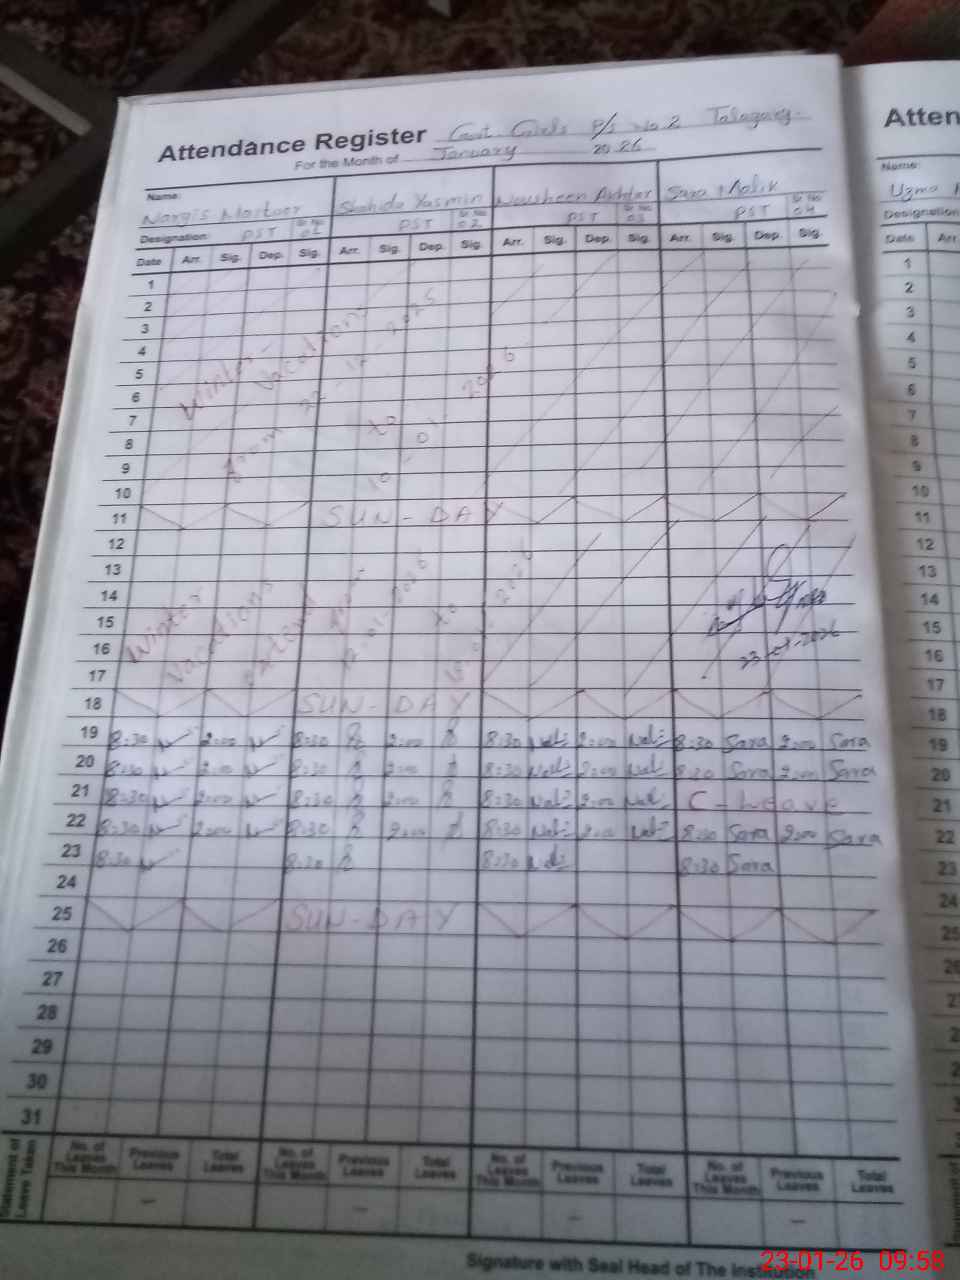 Attendance Register Govt. Girls P/S No 2 Talagang.
For the Month of January 2026
Name:
Nargis Shahida Yasmin Nousheen Akhter Sara Malik
Designation: PST Sr No 01 PST Sr No 02 PST Sr No 03 PST Sr No 04
Date Arr. Sig. Dep. Sig. Arr. Sig. Dep. Sig. Arr. Sig. Dep. Sig. Arr. Sig. Dep. Sig.
1
2
3
4
5
6
7
8
9
10
Winter Vacations
from 22-12-2025
to
10-01-2026
11 SUN-DAY
12
13
14
15
16
17
Winter
Vacations
extend
from
-01-2026
to
2026
23-01-2026
18 SUN-DAY
19 8:30 2:00 8:30 2:00 8:30 2:00 8:30 Sara 2:00 Sara
20 8:30 2:00 8:30 2:00 8:30 2:00 8:30 Sara 2:00 Sara
21 8:30 2:00 8:30 2:00 8:30 2:00 C-Leave
22 8:30 2:00 8:30 2:00 8:30 2:00 8:30 Sara 2:00 Sara
23 8:30 8:30 8:30 8:30 Sara
24
25 SUN-DAY
26
27
28
29
30
31
Statement of Leave Taken
No. of Leaves This Month Previous Leaves Total Leaves No. of Leaves This Month Previous Leaves Total Leaves No. of Leaves This Month Previous Leaves Total Leaves No. of Leaves This Month Previous Leaves Total Leaves
- - - -
Signature with Seal Head of The Institution
Atten
Name:
Uzma
Designation
Date Arr
1
2
3
4
5
6
7
8
9
10
11
12
13
14
15
16
17
18
19
20
21
22
23
24
25
26
23-01-26 09:58